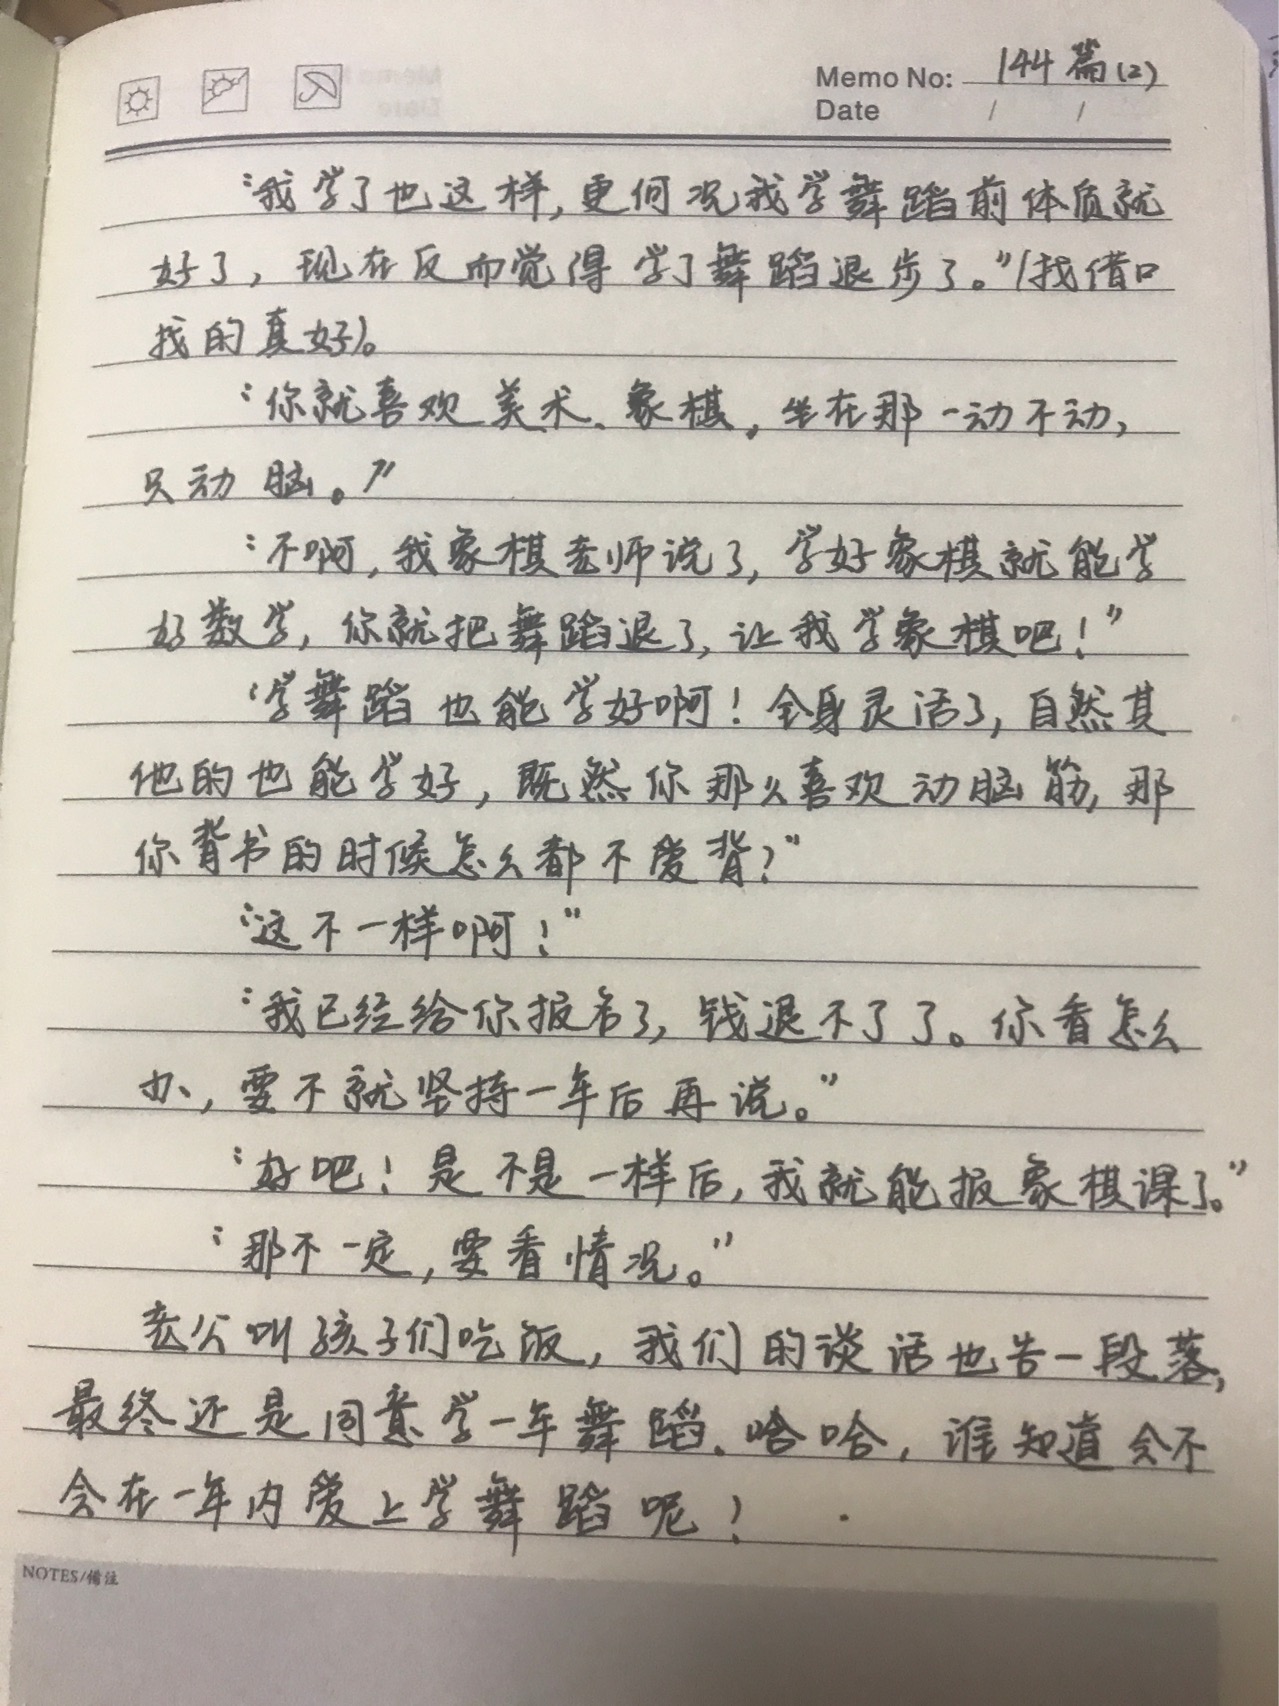 Memo No: 144篇(2)
Date / /
“我学了也这样,更何况我学舞蹈前体质就
好了,现在反而觉得学了舞蹈退步了。”(找借口
找的真好)。
“你就喜欢美术、象棋,坐在那一动不动,
只动脑。”
“不啊,我象棋老师说了,学好象棋就能学
好数学,你就把舞蹈退了,让我学象棋吧!”
“学舞蹈也能学好啊!全身灵活了,自然其
他的也能学好,既然你那么喜欢动脑筋,那
你背书的时候怎么都不爱背?”
“这不一样啊!”
“我已经给你报名了,钱退不了了。你看怎么
办,要不就坚持一年后再说。”
“好吧!是不是一样后,我就能报象棋课了。”
“那不一定,要看情况。”
老公叫孩子们吃饭,我们的谈话也告一段落,
最终还是同意学一年舞蹈、哈哈,谁知道会不
会在一年内爱上学舞蹈呢!
NOTES/备注